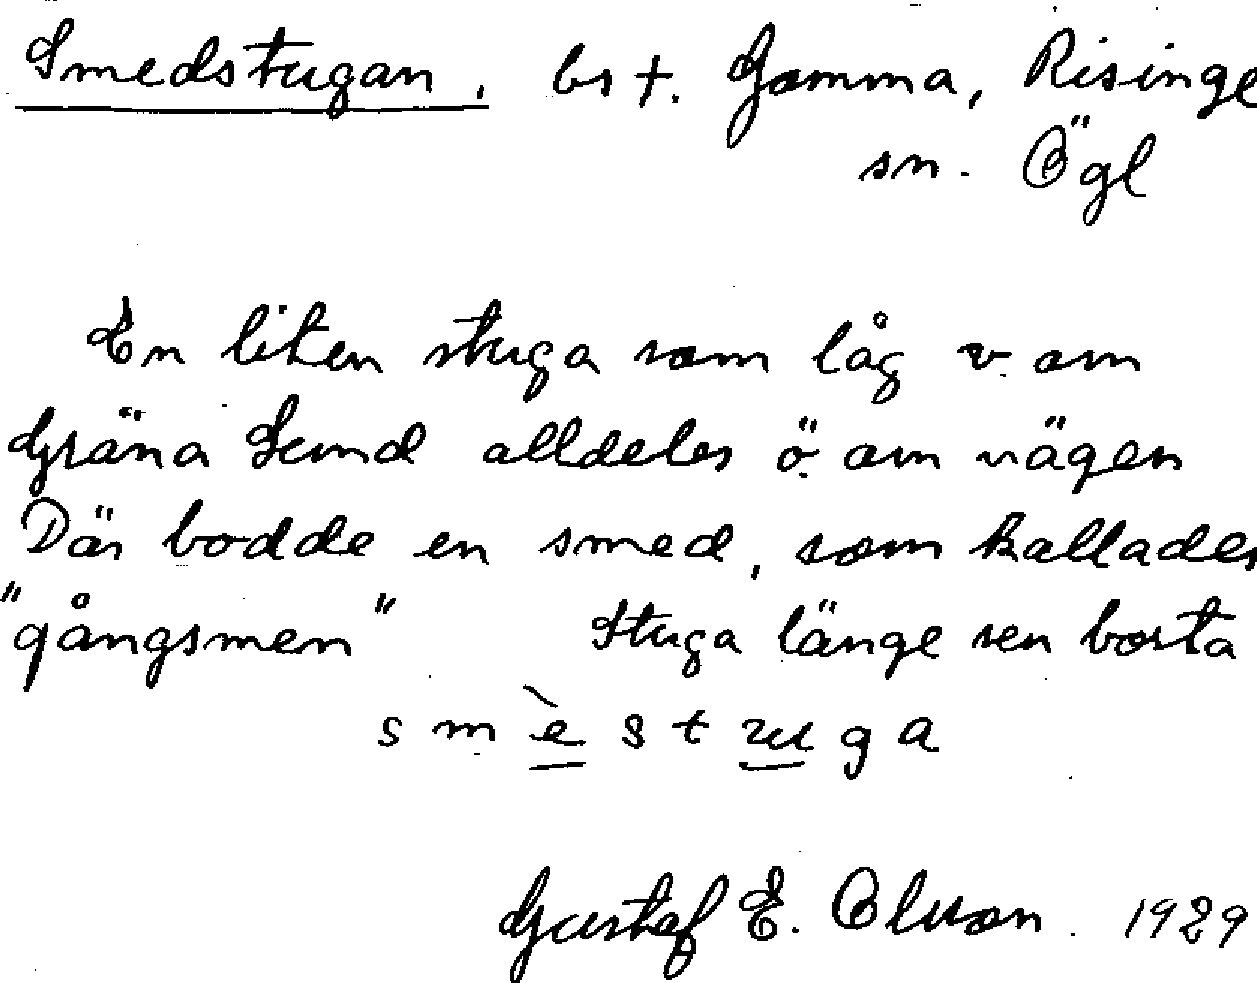 Smedstugan. bs †. Gomma, Risinge
sn. Ögl
En liten stuga som låg v. om
Gröna Lund alldeles ö. om vägen
Där bodde en smed, som kallades
"gångsmen" Stuga länge sen borta
s m è s t u g a
Gustaf E. Olsson. 1929